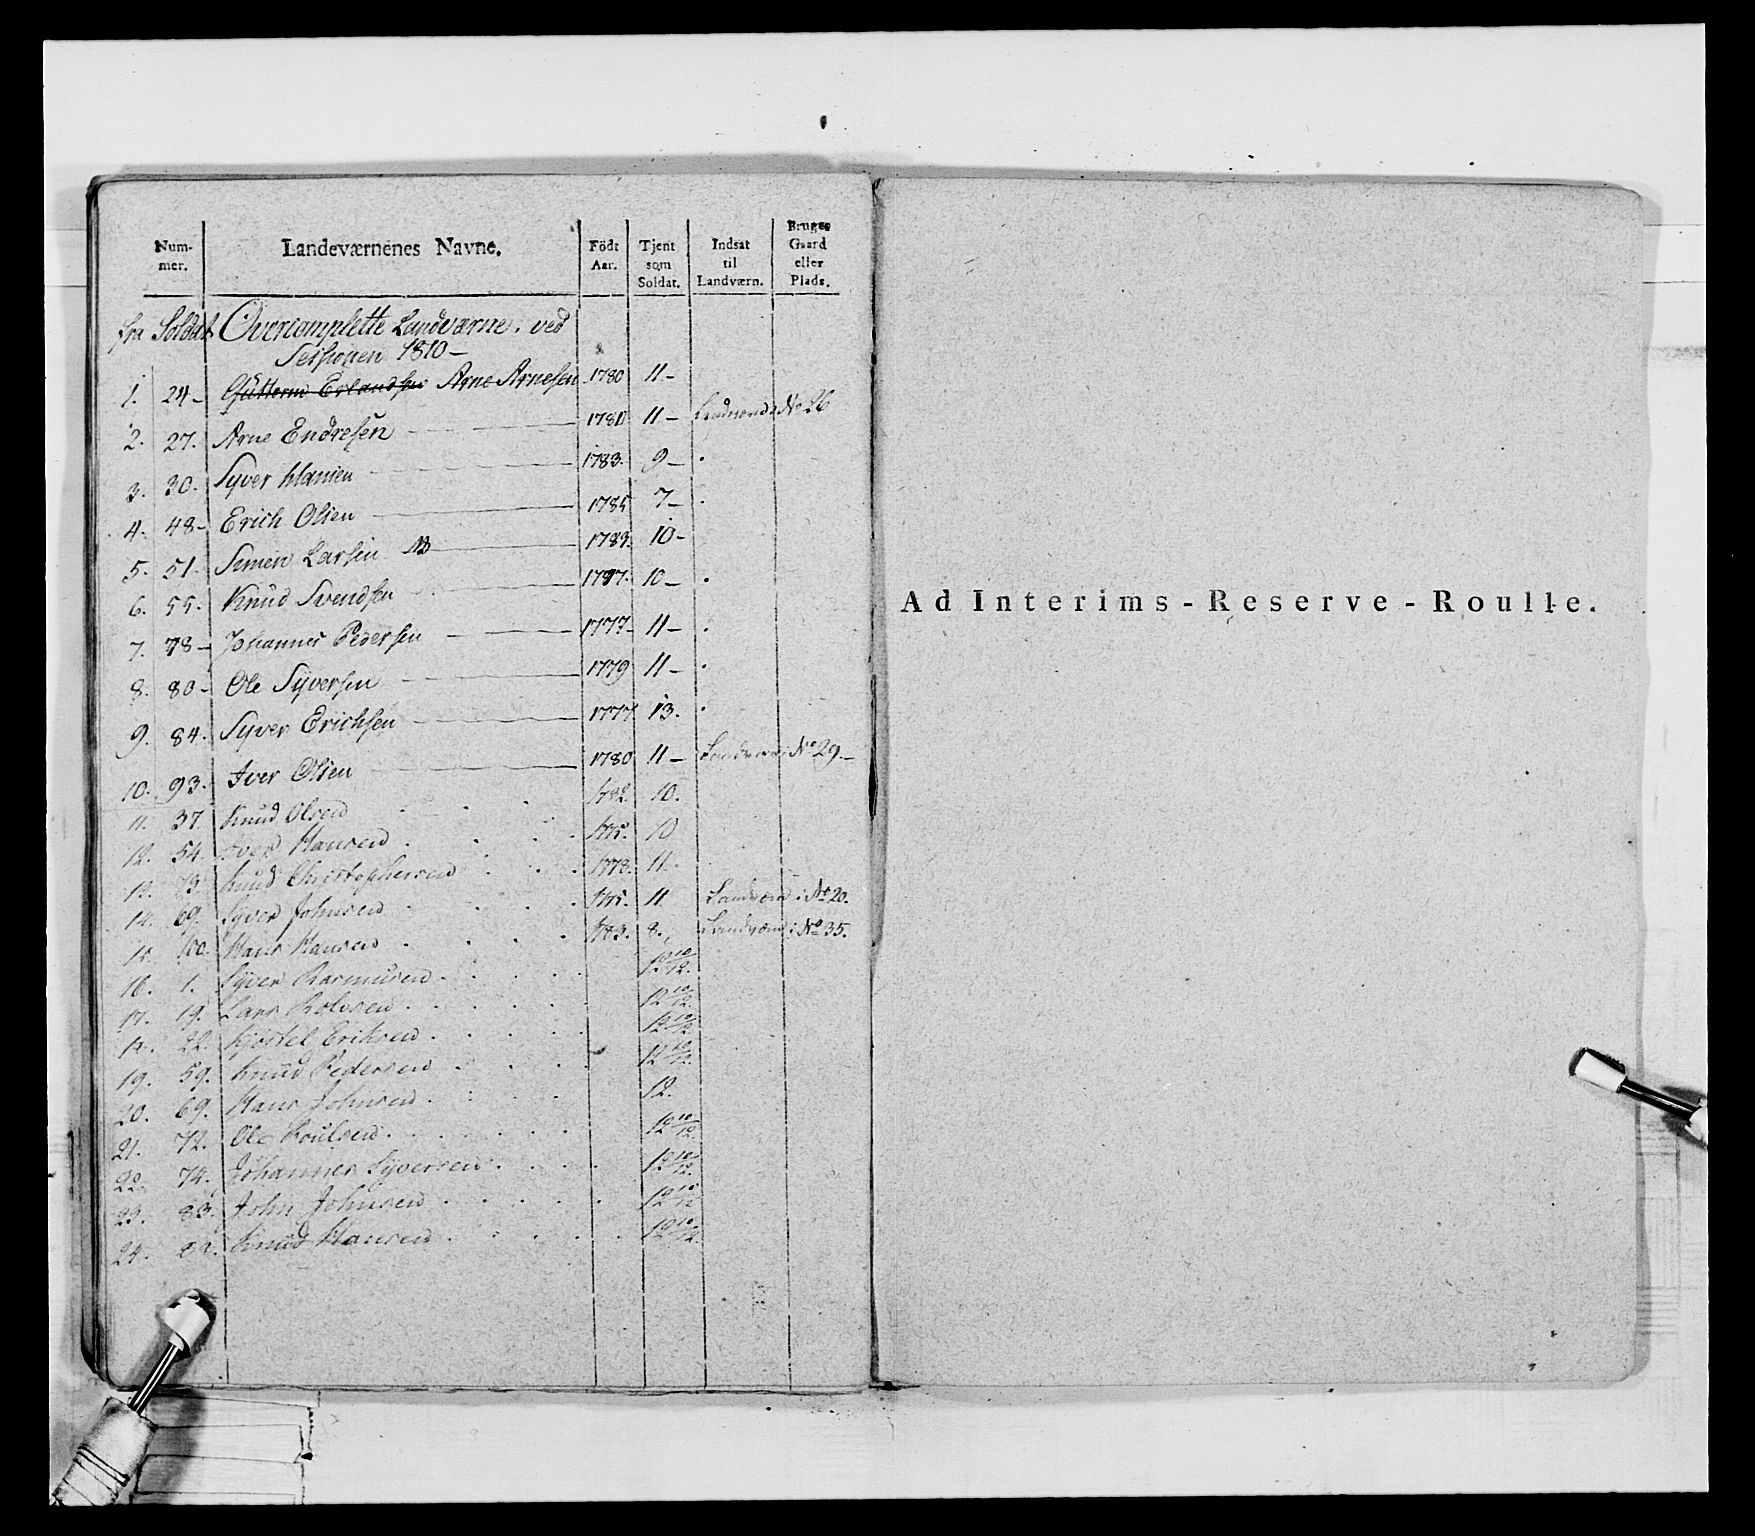 Num-
mer.
Landeværnenes Navne.
Födt
Aar.
Tjent
som
Soldat.
Indsat
til
Landværn.
Bruges
Gaard
eller
Plads.
fra Soldat Overcomplette Landværne, ved
Sessionen 1810 –
1. 24 – Guttorm Erlandsen Arne Arnesen 1780 11 –
2. 27. Arne Endresen 1780 11 – Landværn i No 26
3. 30. Syver Hansen 1783. 9 –
4. 48 – Erich Olsen 1785 7 –
5. 51. Simen Larsen NB 1783. 10 –
6. 55. Knud Svendsen 1787. 10 –
7. 78 – Johannes Pedersen 1777 – 11 –
8. 80 – Ole Syversen 1779 11 –
9. 84. Syver Erichsen 1777 13.
10. 93. Iver Olsen 1780 11 – Landværn i No 29. –
11. 37. Knud Olsen 1782 10.
12. 54. Iver Hansen 10
13. 73. Knud Christophersen 1778. 11.
14. 69. Syver Johnsen 11 Landværn i No 20.
15. 100. Hans Hansen 1783. 8. Landværn i No 35.
16. 1. Syver Rasmusen 12 10/12.
17. 19. Lars Rolvsen 12 10/12.
18. 22. Kjøstel Eriksen 12 10/12.
19. 59. Knud Pedersen 12 10/12.
20. 69. Hans Johnsen 12.
21. 72. Ole Poulsen 12 10/12.
22. 74. Johannes Syversen 12 10/12.
23. 83. John Johnsen 12 10/12
24. Knud Hansen 12 10/12.
Ad Interims-Reserve-Roulle.